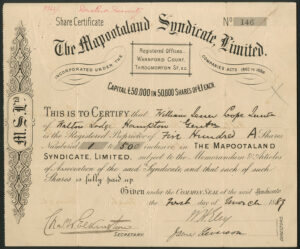 Share Certificate
No 146
The Mapootaland Syndicate, Limited.
INCORPORATED UNDER THE
Registered Offices.
WARNFORD COURT,
THROGMORTON ST, E.C.
COMPANIES ACTS 1862 TO 1886
CAPITAL £50,000 IN 50,000 SHARES OF £1 EACH
THIS IS TO CERTIFY that William Cope
of Lodge, Hampton
is the Registered Proprietor of Five Hundred A Shares
Numbered 1 to 500 inclusive in THE MAPOOTALAND
SYNDICATE, LIMITED, subject to the Memorandum & Articles
of Association of the said Syndicate and that each of such
Shares is fully paid up.
Given under the COMMON SEAL of the said Syndicate
the First day of March 1889
SECRETARY
M.S.Ld